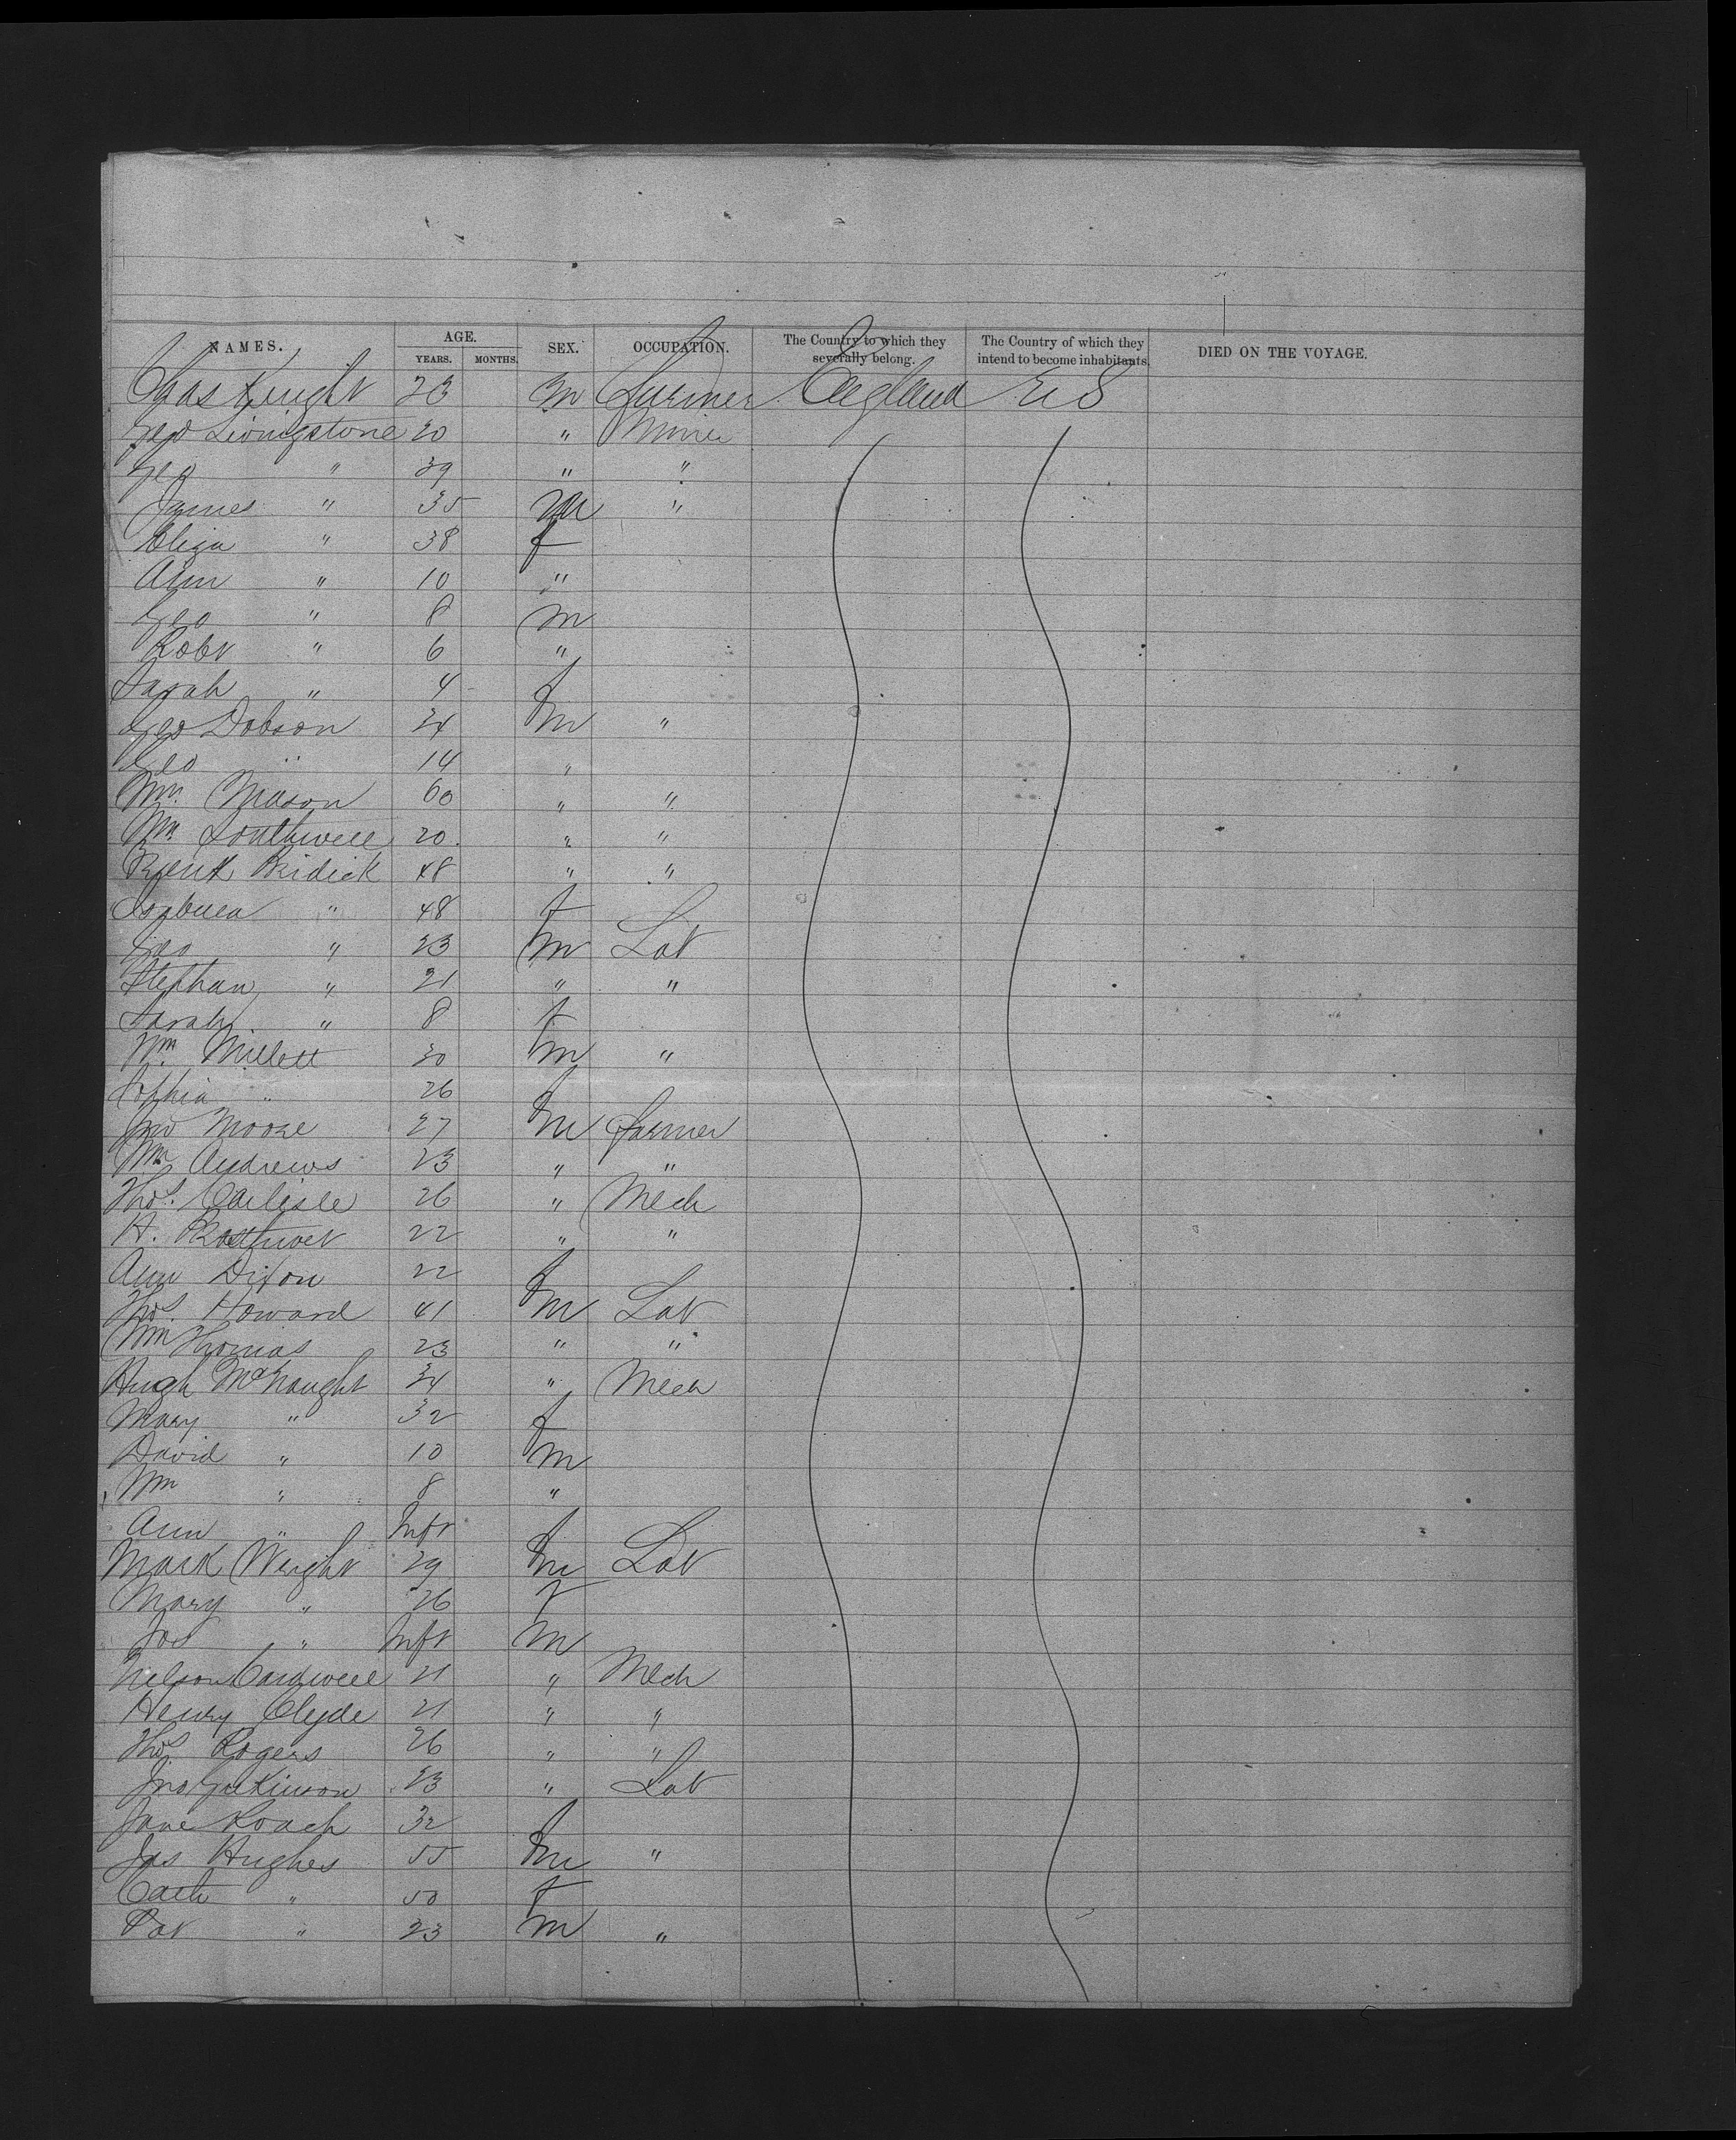 NAMES. AGE. SEX. OCCUPATION. The Country to which they severally belong. The Country of which they intend to become inhabitants. DIED ON THE VOYAGE.
YEARS. MONTHS.
Chas Knight 23 m Farmer England U S
Geo Livingstone 20 " Miner
Geo " 39 " "
James " 35 m "
Eliza " 38 f
Ann " 10 "
Geo " 8 m
Robt " 6 "
Sarah " 4 f
Geo Dobson 34 m "
Geo " 14 "
Wm Mason 60 " "
Wm Southwell 20 " "
Ridick 48 " "
Isabella " 48 f
Geo " 23 m Lab
Stephan " 21 " "
Sarah " 8 f
Wm Millett 30 m "
Sophia " 26 f
Jno Moore 27 m Farmer
Wm Andrews 23 " "
Thos. Carlisle 26 " Mech
H. 22 " "
Ann Dixon 22 f
Thos. Howard 41 m Lab
Wm Thomas 23 " "
Hugh McNaught 34 " Mech
Mary " 32 f
David " 10 m
Wm " 8 "
Ann " Inft f
Mark Wright 29 m Lab
Mary " 26 f
Jos " Inft m
Nelson Cardwell 21 " Mech
Henry Clyde 21 " "
Thos Rogers 26 " "
Jno 23 " Lab
Jane Roach 32 f
Jas Hughes 55 m "
Cath " 50 f
Pat " 23 m "